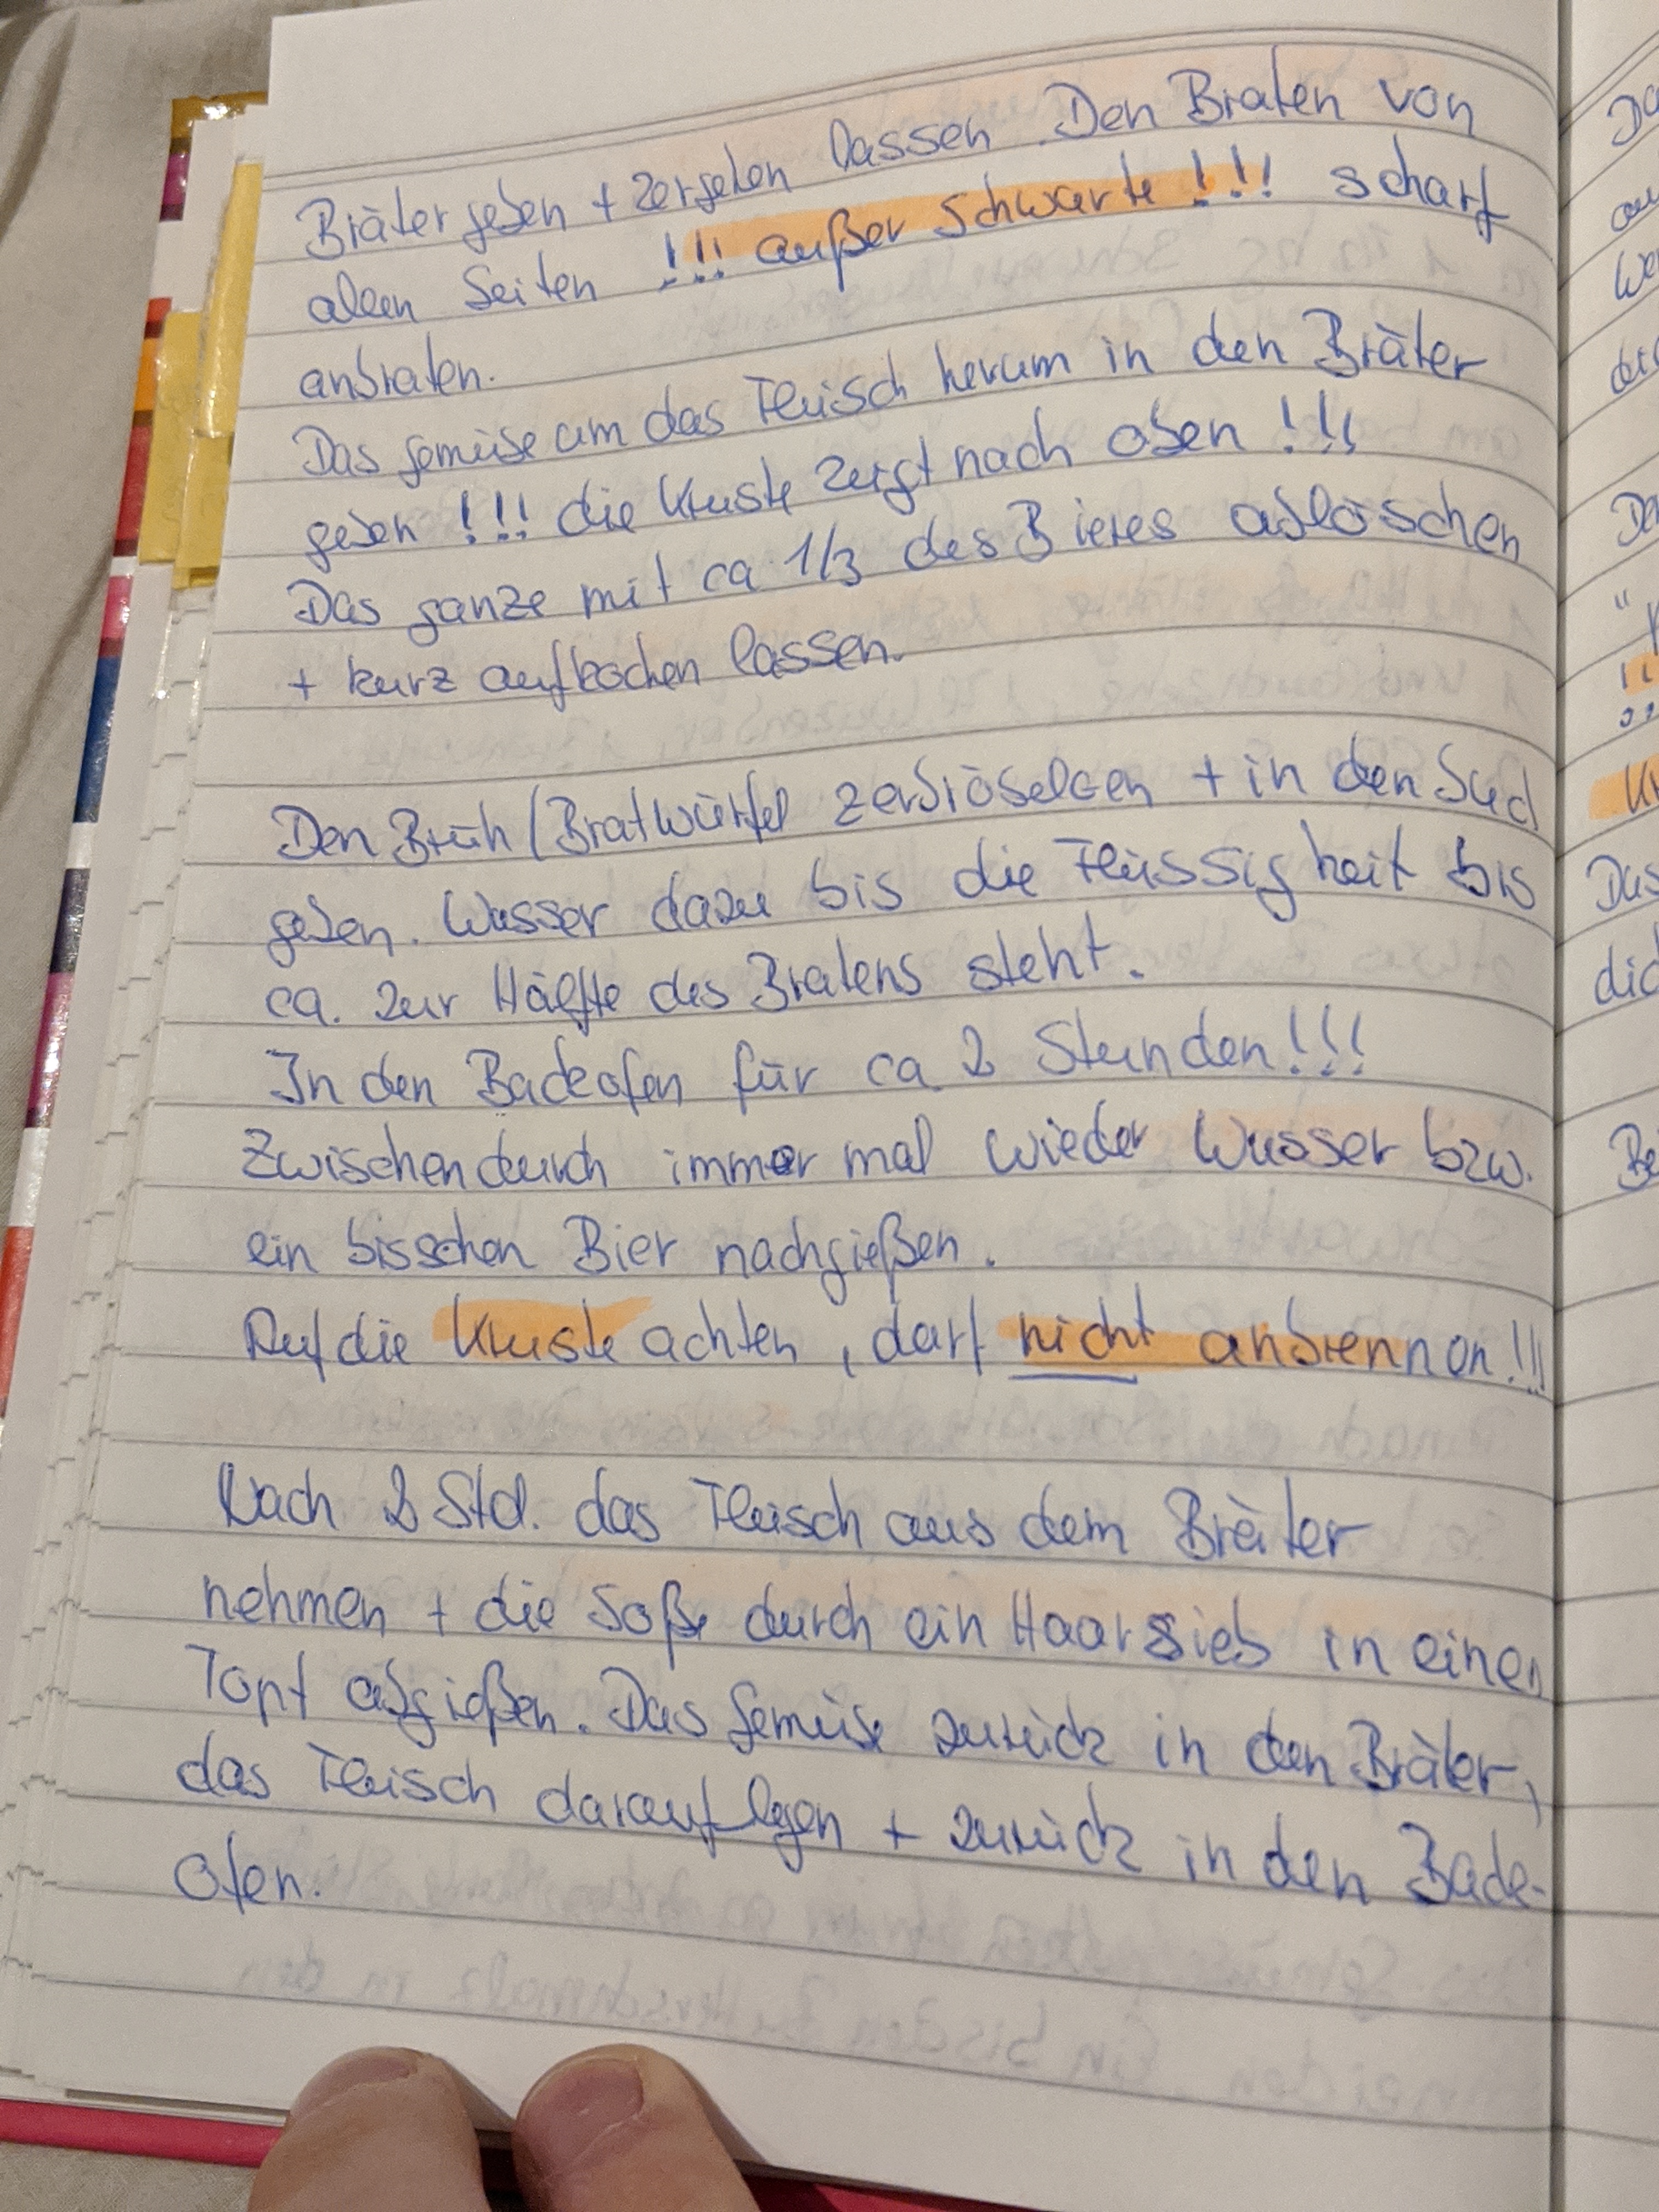 Bräter geben + zergehen lassen. Den Braten von
allen Seiten !!! außer Schwarte !!! scharf
anbraten.
Das Gemüse um das Fleisch herum in den Bräter
geben !!! die Kruste zeigt nach oben !!!
Das ganze mit ca 1/3 des Bieres ablöschen
+ kurz aufkochen lassen.
Den Brüh/Bratwürfel zerbröselen + in den Sud
geben. Wasser dazu bis die Flüssigkeit bis
ca. zur Hälfte des Bratens steht.
In den Backofen für ca 2 Stunden!!!
Zwischendurch immer mal wieder Wasser bzw.
ein bisschen Bier nachgießen.
Auf die Kruste achten, darf nicht anbrennen!!!
Nach 2 Std. das Fleisch aus dem Bräter
nehmen + die Soße durch ein Haarsieb in einen
Topf abgießen. Das Gemüse zurück in den Bräter,
das Fleisch darauf legen + zurück in den Back-
ofen.